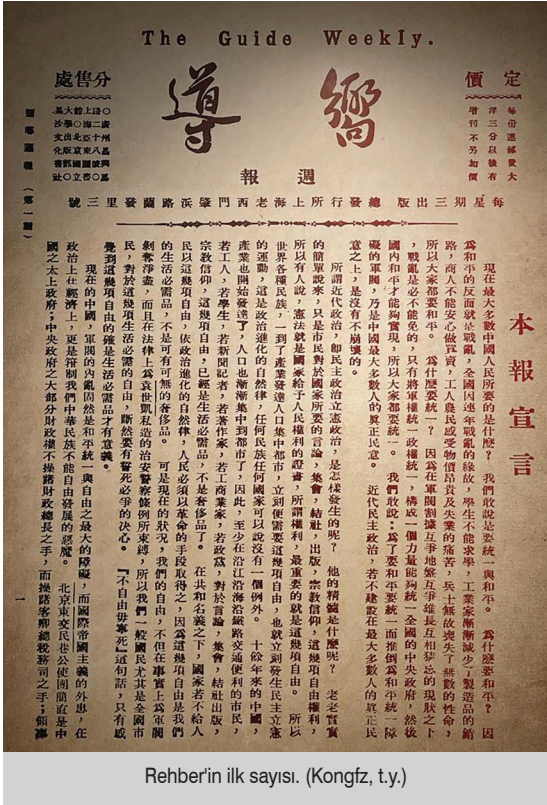 The Guide Weekly.
定價
每份連郵費大
洋三分以後有
增刊不另加價
嚮導
週報
分售處
每星期三出版 總發行所上海老西門肇浜路蘭發里三號
本報宣言
現在最大多數中國人民所要的是什麼？我們敢說是要統一與和平。為什麼要和平？因
為和平的反面就是戰亂，全國因連年戰亂的緣故，學生不能求學，工業家漸漸減少了製造品的銷
路，商人不能安心做買賣，工人農民感受物價昂貴及失業的痛苦，兵士無故喪失了無數的性命，
所以大家都要和平。為什麼要統一？因為在軍閥割據互爭地盤互爭雄長互相猜忌的現狀之下
，戰亂是必不能免的，只有將軍權統一，政權統一，構成一個力量能夠統一全國的中央政府，然後
國內和平才能夠實現，所以大家都要統一。我們敢說：為了要和平要統一而推倒為和平統一障
礙的軍閥，乃是中國最大多數人的真正民意。近代民主政治，若不建設在最大多數人的真正民
意之上，是沒有不崩壞的。
所謂近代政治，即民主政治立憲政治，是怎樣發生的呢？他的精髓是什麼呢？老老實實
的簡單說來，只是市民對於國家所要的言論，集會，結社，出版，宗教信仰，這幾項自由權利，
所以有人說，憲法就是國家給予人民權利的證書，所謂權利，最重要的就是這幾項自由。所以
世界各種民族，一到了產業發達人口集中都市，立刻便需要這幾項自由，也就立刻發生民主立憲
的運動，這是政治進化的自然律，任何民族任何國家可以說沒有一個例外。十餘年來的中國，
產業也開始發達了，人口也漸漸集中到都市了，因此，至少在沿江沿海沿鐵路交通便利的市民，
若工人，若學生，若新聞記者，若著作家，若工商業家，若政黨，對於言論，集會，結社，出版，
宗教信仰，這幾項自由，已經是生活必需品，不是奢侈品了。在共和名義之下，國家若不給人
民以這幾項自由，依政治進化的自然律，人民必須以革命的手段取得之，因為這幾項自由是我們
的生活必需品，不是可有可無的奢侈品。可是現在的狀況，我們的自由，不但在事實上為軍閥
剝奪淨盡，而且在法律上為袁世凱私造的治安警察條例所束縛，所以我們一般國民尤其是全國市
民，對於這幾項生活必需的自由，斷然要有誓死必爭的決心。『不自由毋寧死』這句話，只有感
覺到這幾項自由的確是生活必需品才有意義。
現在的中國，軍閥的內亂固然是和平統一與自由之最大的障礙，而國際帝國主義的外患，在
政治上在經濟上，更是箝制我們中華民族不能自由發展的惡魔。北京東交民巷公使團簡直是中
國之太上政府；中央政府之大部分財政權不操諸財政總長之手，而操諸客卿總稅務司之手；領事
嚮導週報 （第一期）
一
Rehber'in ilk sayısı. (Kongfz, t.y.)